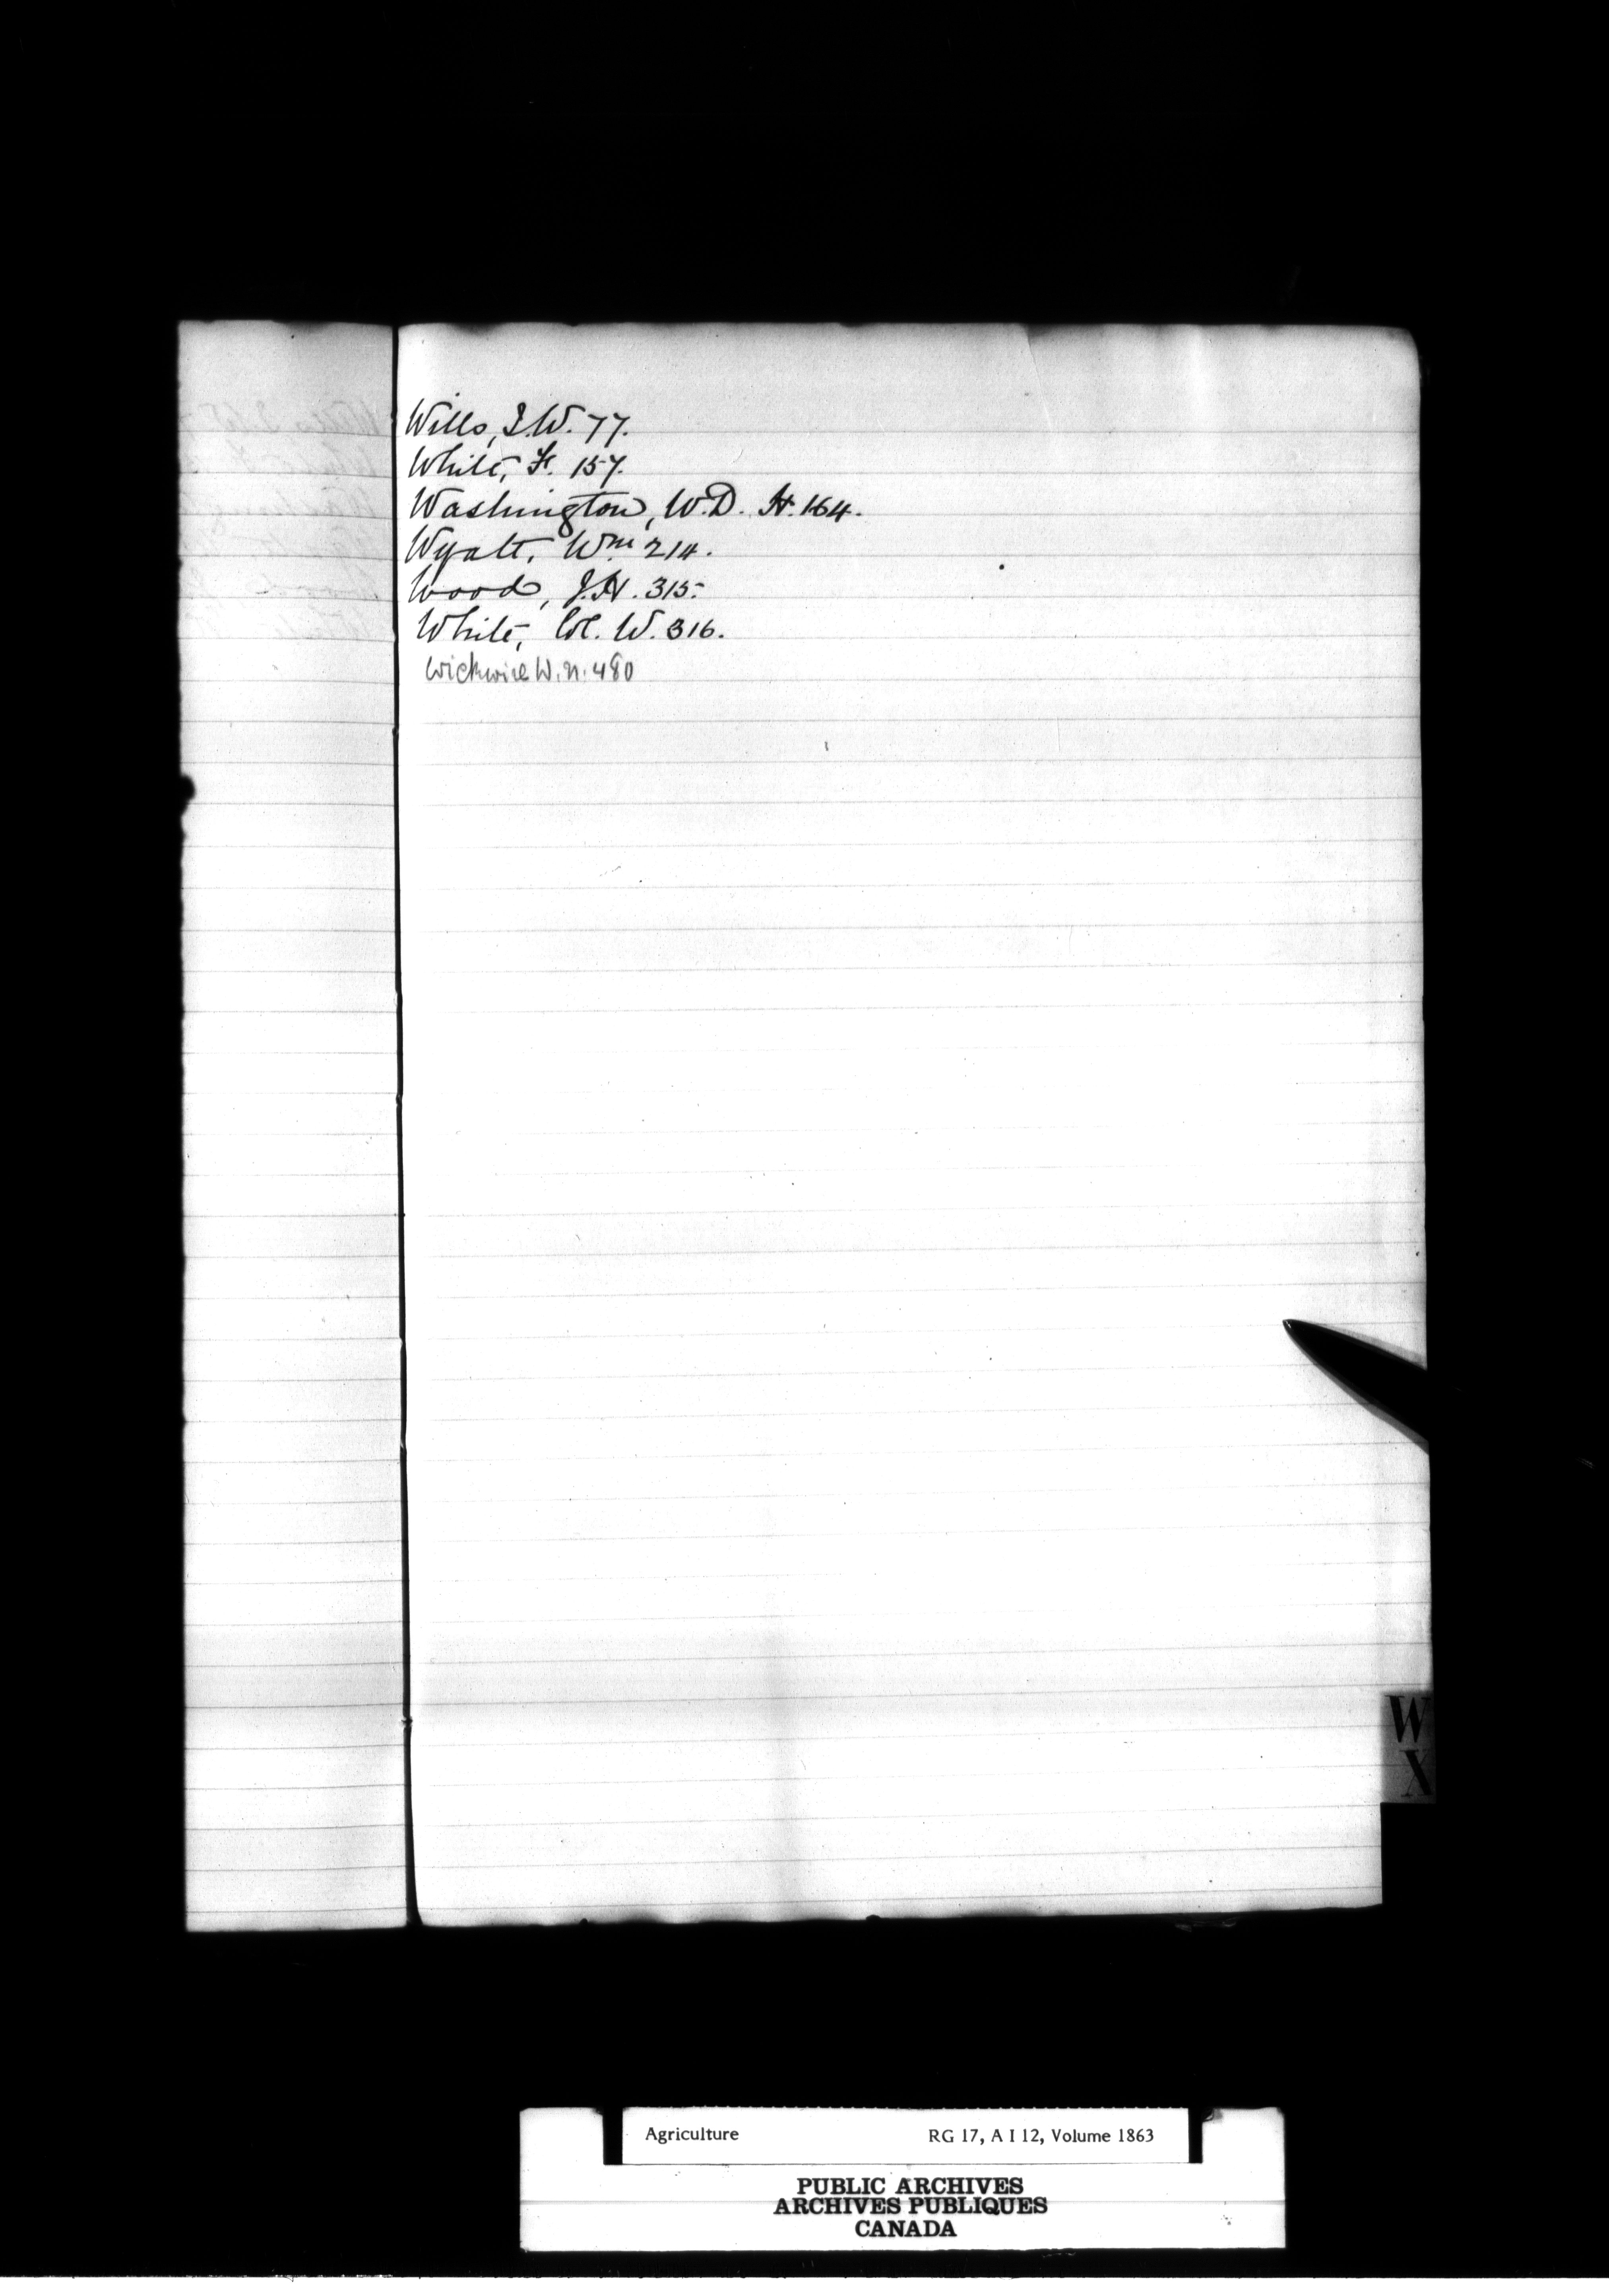 Wills, I.W. 77.
White, F. 157.
Washington, W.D. H. 164.
Wyatt, Wm 214.
Wood, J.H. 315.
White, Col. W. 316.
Wickwire W.N. 480
W
X
Agriculture RG 17, A I 12, Volume 1863
PUBLIC ARCHIVES
ARCHIVES PUBLIQUES
CANADA